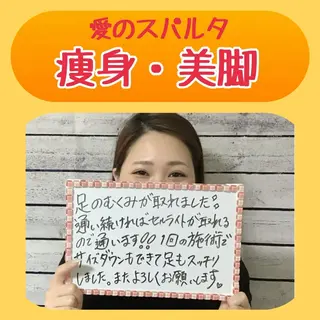 愛のスパルタ
痩身・美脚
足のむくみが取れました!!
通い続ければセルライトが取れる
ので通います!!1回の施術で
サイズダウンもできて足もスッキリ
しました。またよろしくお願いします。